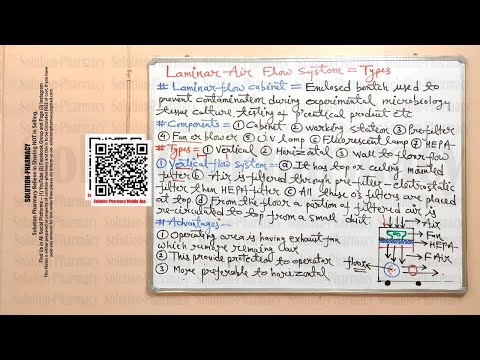 Laminar Air Flow System = Types
# Laminar flow cabinet = Enclosed bentch used to
prevent contamination during experimental microbiology
tissue culture, testing of p'ceutical product etc
# Components = ① Cabinet ② working station ③ Prefilter
④ Fan or blower ⑤ U.V. Lamp ⑥ Fluorescent lamp ⑦ HEPA
# Types = ① Vertical ② Horizontal ③ Wall to floor flow
① Vertical flow system = ⓐ It has top or ceiling mounted
filter ⓑ Air is filtered through pre-filter - eletrostatic
filter then HEPA filter ⓒ All those 3 filters are placed
at top. ⓓ From the floor a portion of filtered air is
re-circulated to top from a small duct.
# Advantages --
① Operating area is having exhaust fan
which remove remaing air
② This provide protection to operator
③ More preferable to horizontal
Air
Fan
HEPA
F Air
floor
SOLUTION-PHARMACY
Solution-Pharmacy Believe in Sharing NOT in Selling.
Solution Pharmacy Mobile App
Solution-Pharmacy